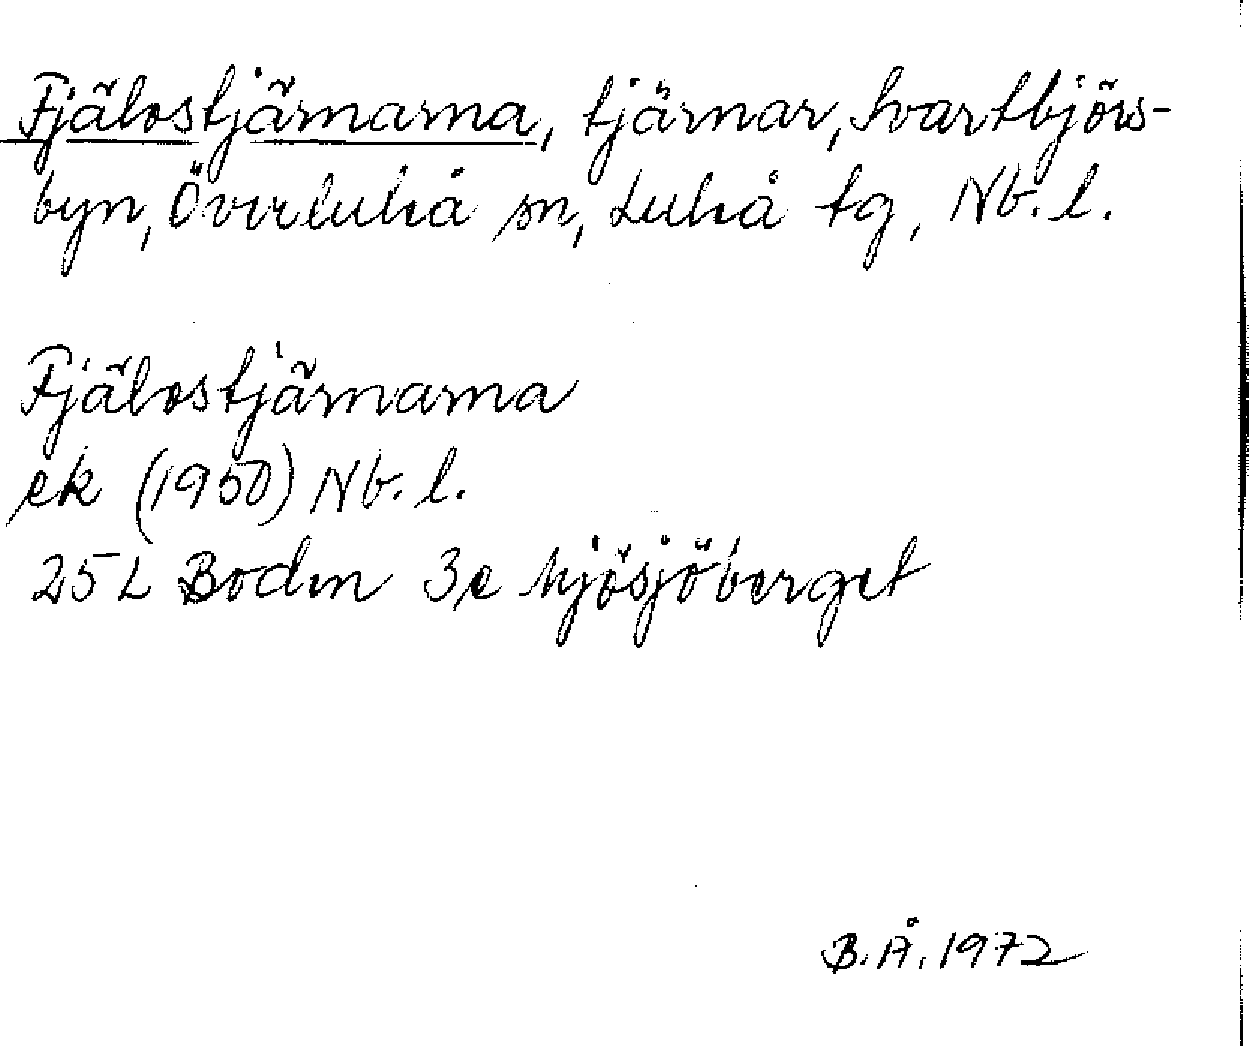 Fjälostjärnarna, tjärnar, Svartbjörs-
byn, Överluleå sn, Luleå tg, Nb. l.
Fjälostjärnarna
ek (1950) Nb. l.
25 L Boden 3e hjösjöberget
B.Å. 1972